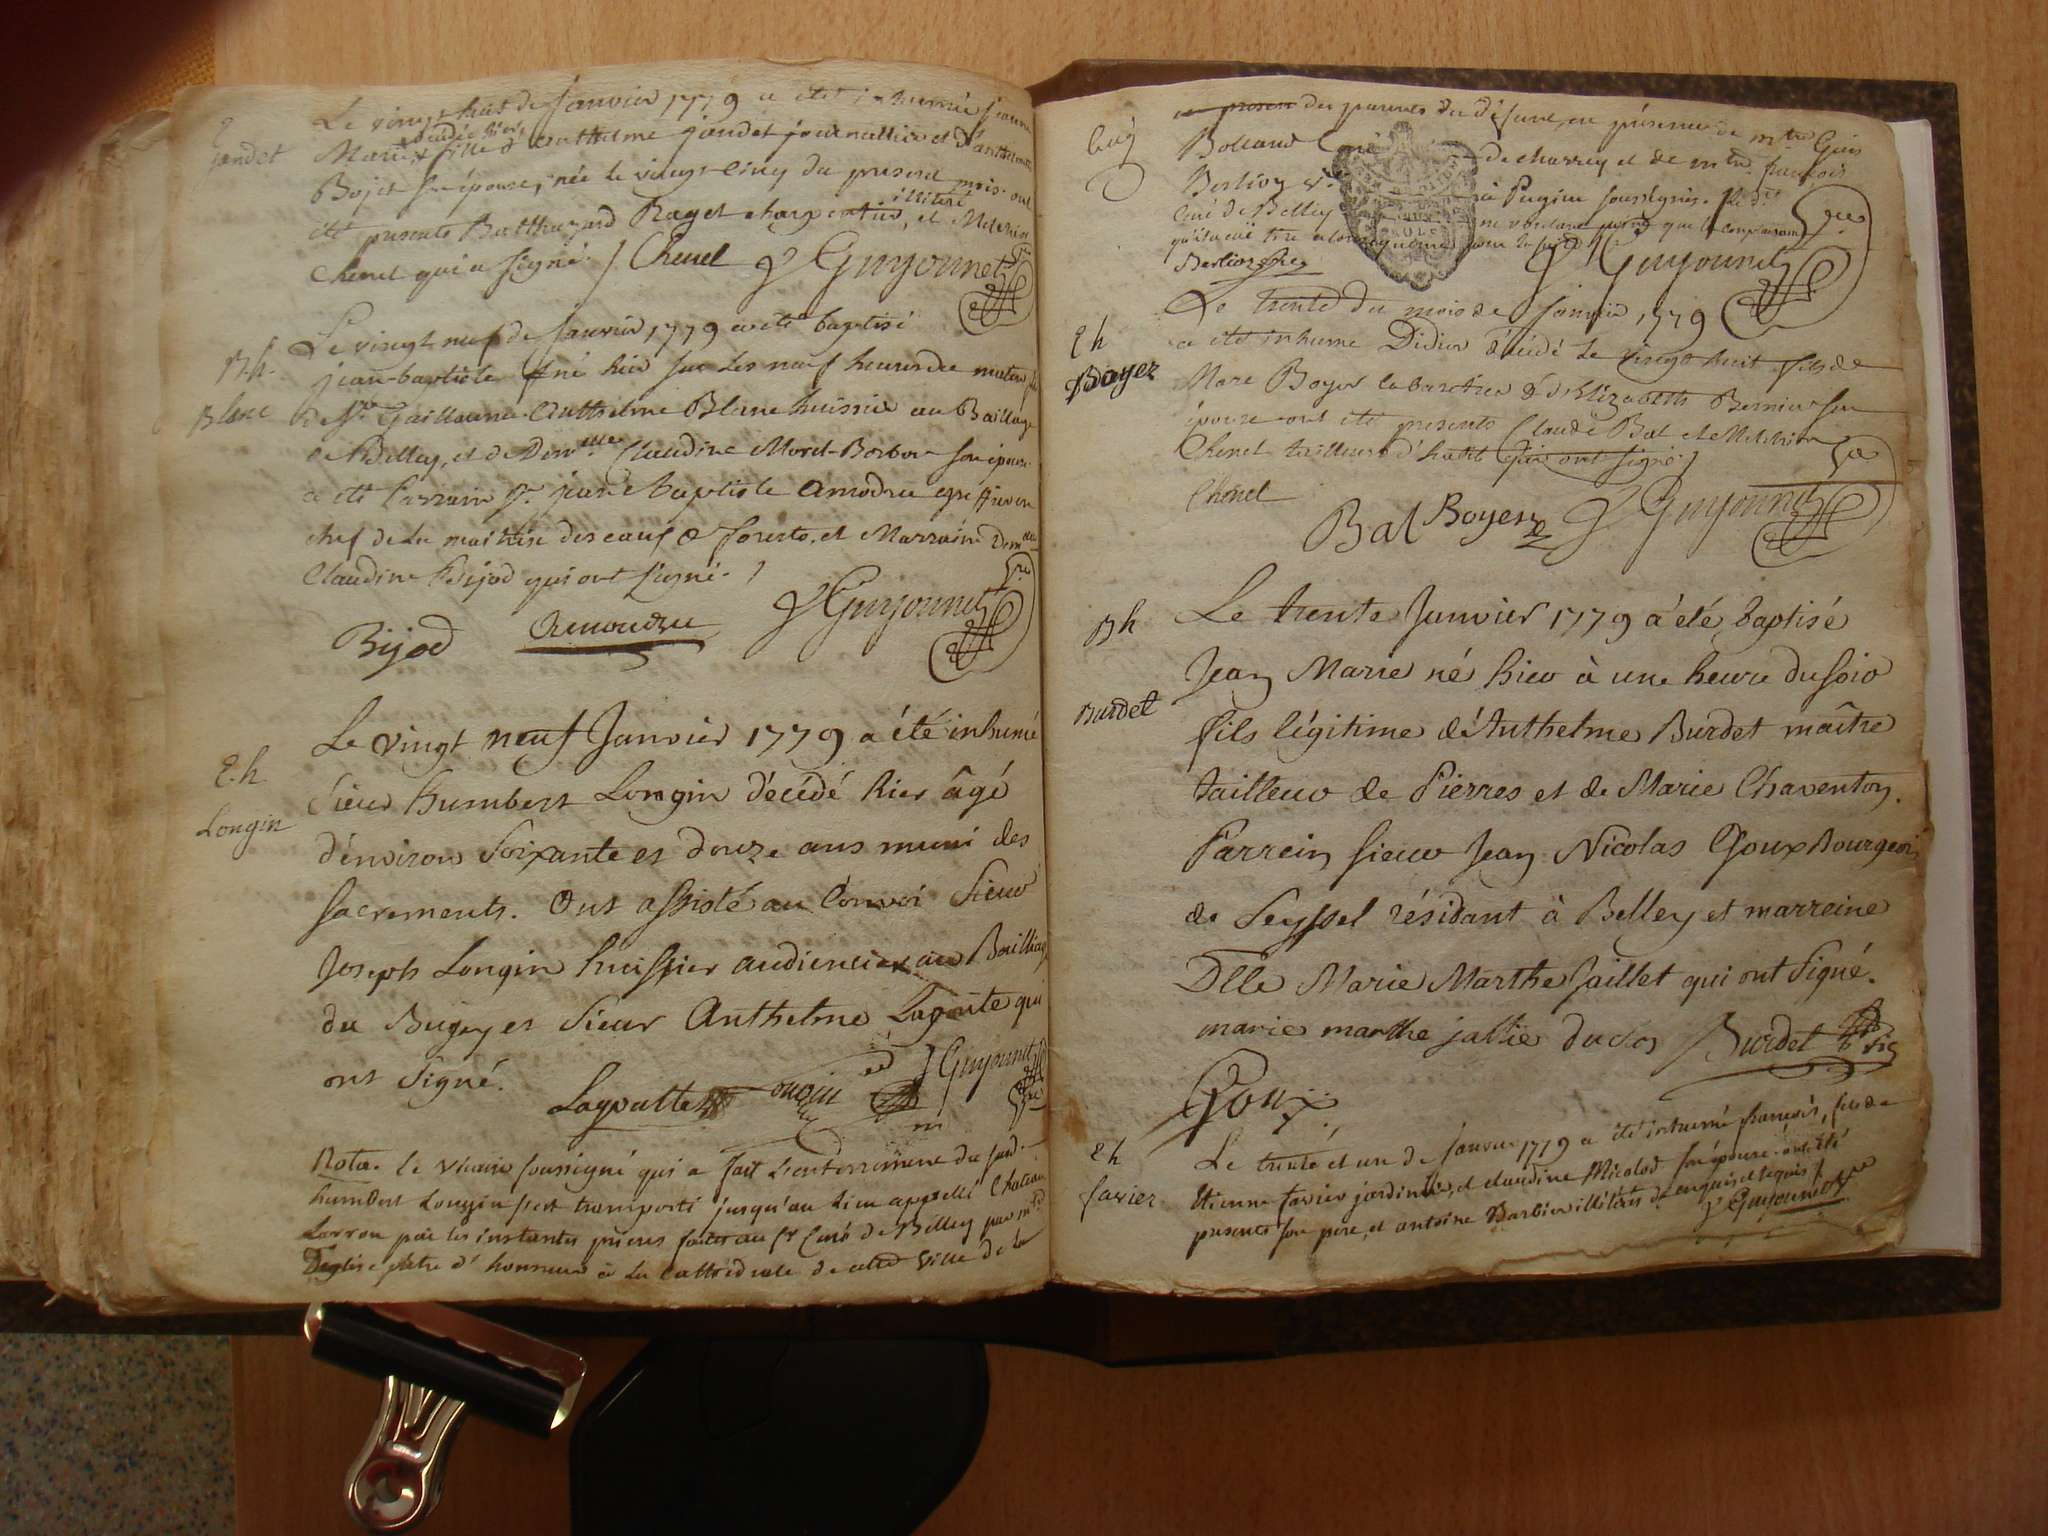 Le vingt huit de Janvier 1779 a été inhumée jeanne
E
jandet
décédée hier
Marie fille d'anthelme jandet journallier et d'anthelmette
Bojet son épouse, née le vingt cinq du present mois. ont
illiteré
été presents Balthazard Raget charpentier, et Melchior
Chenel qui a signé. / Chenel Guyonnet
Le vingt neuf de Janvier 1779 a été baptisé
Bh.
jean-baptiste né hier sur les neuf heures du matin fils
Blanc
de Sr. Guillaume-Anthelme Blanc huissier au Bailliage
de Belley, et de Demlle Claudine Morel-Borbon son épouse.
a été Parrain Sr. jean baptiste Amodru greffier en
chef de la maitrise des eaux & forests, et Marraine Demlle
Claudine Bijod qui ont signé. /
Bijod Amoudru Guyonnet
Le vingt neuf Janvier 1779 a été inhumé
E.h
Longin
Sieur humbert Longin décédé hier âgé
d'environ Soixante et douze ans muni des
sacrements. Ont assisté au Convoi Sieur
Joseph Longin huissier audiencier au Bailliage
du Bugey et Sieur Anthelme Lagoute qui
ont Signé. Lagoutte Guyonnet
Nota. le vicaire soussigné qui a fait l'enterrement du sud.
humbert Longin s'est transporté jusqu'au lieu appellé Chateau
Larron par les instantes prieres faites au Sr Curé de Belley par
Deglise prêtre d'honneur à la Cathédrale de cette ville de la
des parents du défunt, en présence de mtre
Bolland de charrey et de mtre françois
Berlioz Pugieu soussignés.
Curé de Belley
Berlioz
Guyonnet
Le trente du mois de Janvier 1779
Eh
Boyer
a été inhumé Didier décédé le vingt huit fils de
Marc Boyer laboureur & d'Elizabeth Bernier son
épouse. ont été presents Claude Bal et Melchior
Chenel tailleurs d'habit qui ont signé. /
Chenel
Bal Boyer Guyonnet
Bh
Burdet
Le trente Janvier 1779 a été baptisé
Jean Marie né hier à une heure du soir
fils légitime d'Anthelme Burdet maître
tailleur de Pierres et de Marie Chaventon.
Parrein sieur Jean Nicolas Goux Bourgeois
de Seyssel résidant à Belley et marreine
Dlle Marie Marthe Jaillet qui ont Signé.
marie marthe Burdet
Goux
Eh
favier
Le trente et un de Janvier 1779 a été inhumé françois, fils de
Etienne favier jardinier, et claudine Micolod son épouse. ont été
presents son pere, et antoine Barbier illiterés de enquis et requis /
Guyonnet